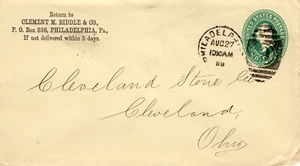 Return to
CLEMENT M. BIDDLE & CO.,
P. O. Box 898, PHILADELPHIA, PA.,
If not delivered within 5 days.
PHILADELPH
AUG 27
UNITED STATES
Cleveland Stone Co
Cleveland,
Ohio